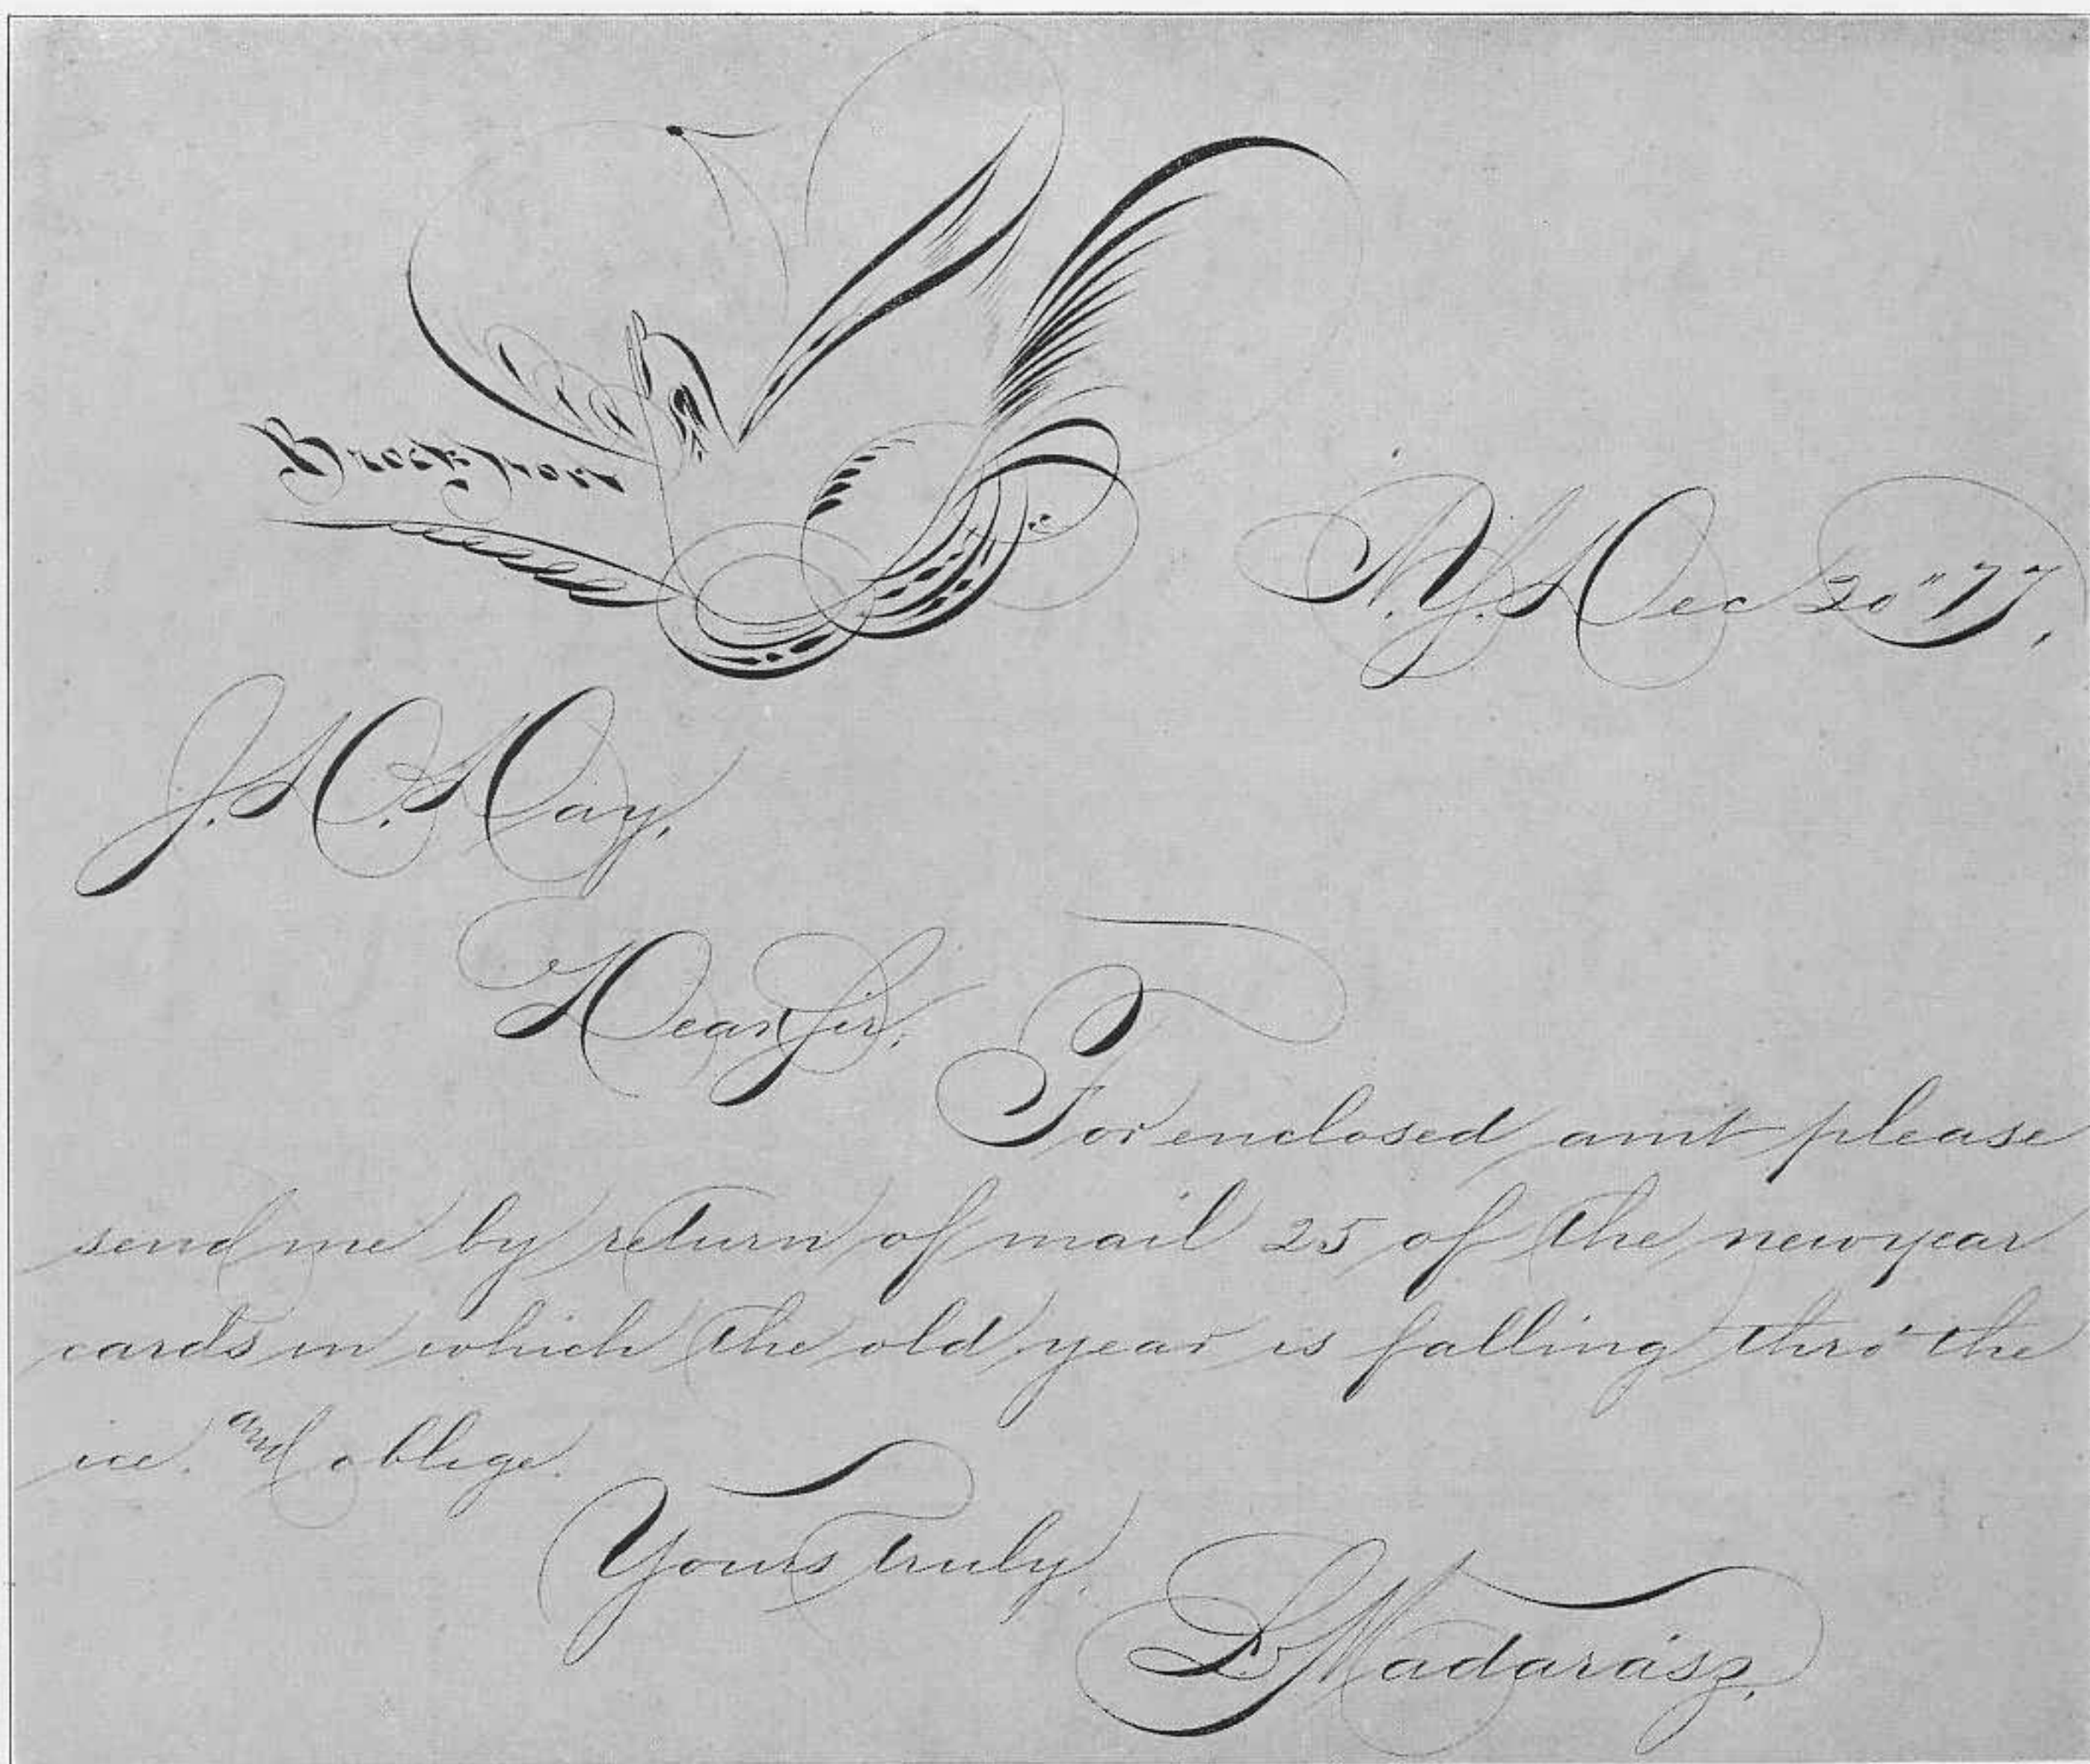 Brockport N.Y. Dec 20" 77,
J. D. Day,
Dear Sir,
For enclosed amt please
send me by return of mail 25 of the new year
cards in which the old year is falling thro' the
ice. and oblige.
Yours truly,
L. Madarász,